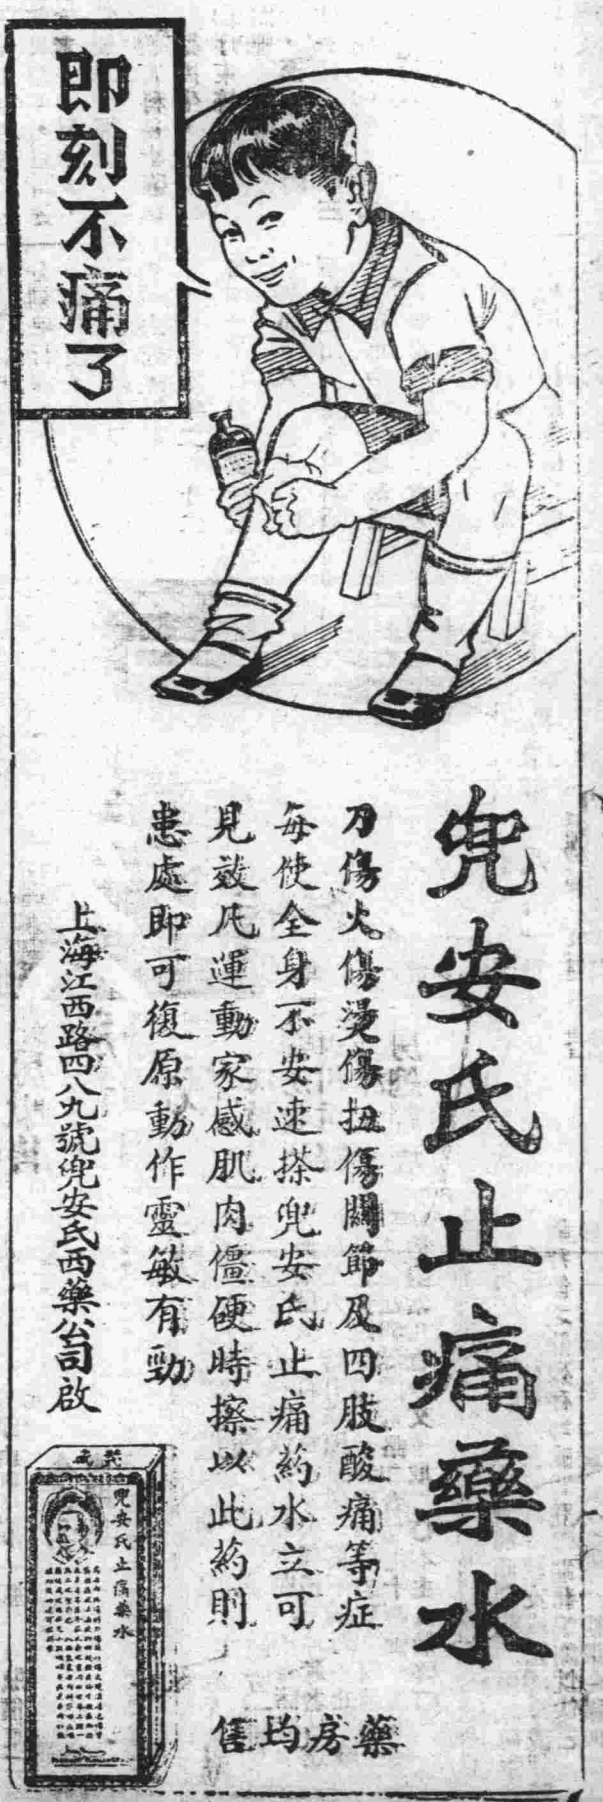 即刻不痛了
兜安氏止痛藥水
刀傷火傷燙傷扭傷關節及四肢酸痛等症
每使全身不安速搽兜安氏止痛葯水立可
見效凡運動家感肌肉僵硬時擦以此葯則
患處即可復原動作靈敏有勁
上海江西路四八九號兜安氏西藥公司啟
藥房均售
兜安氏止痛藥水